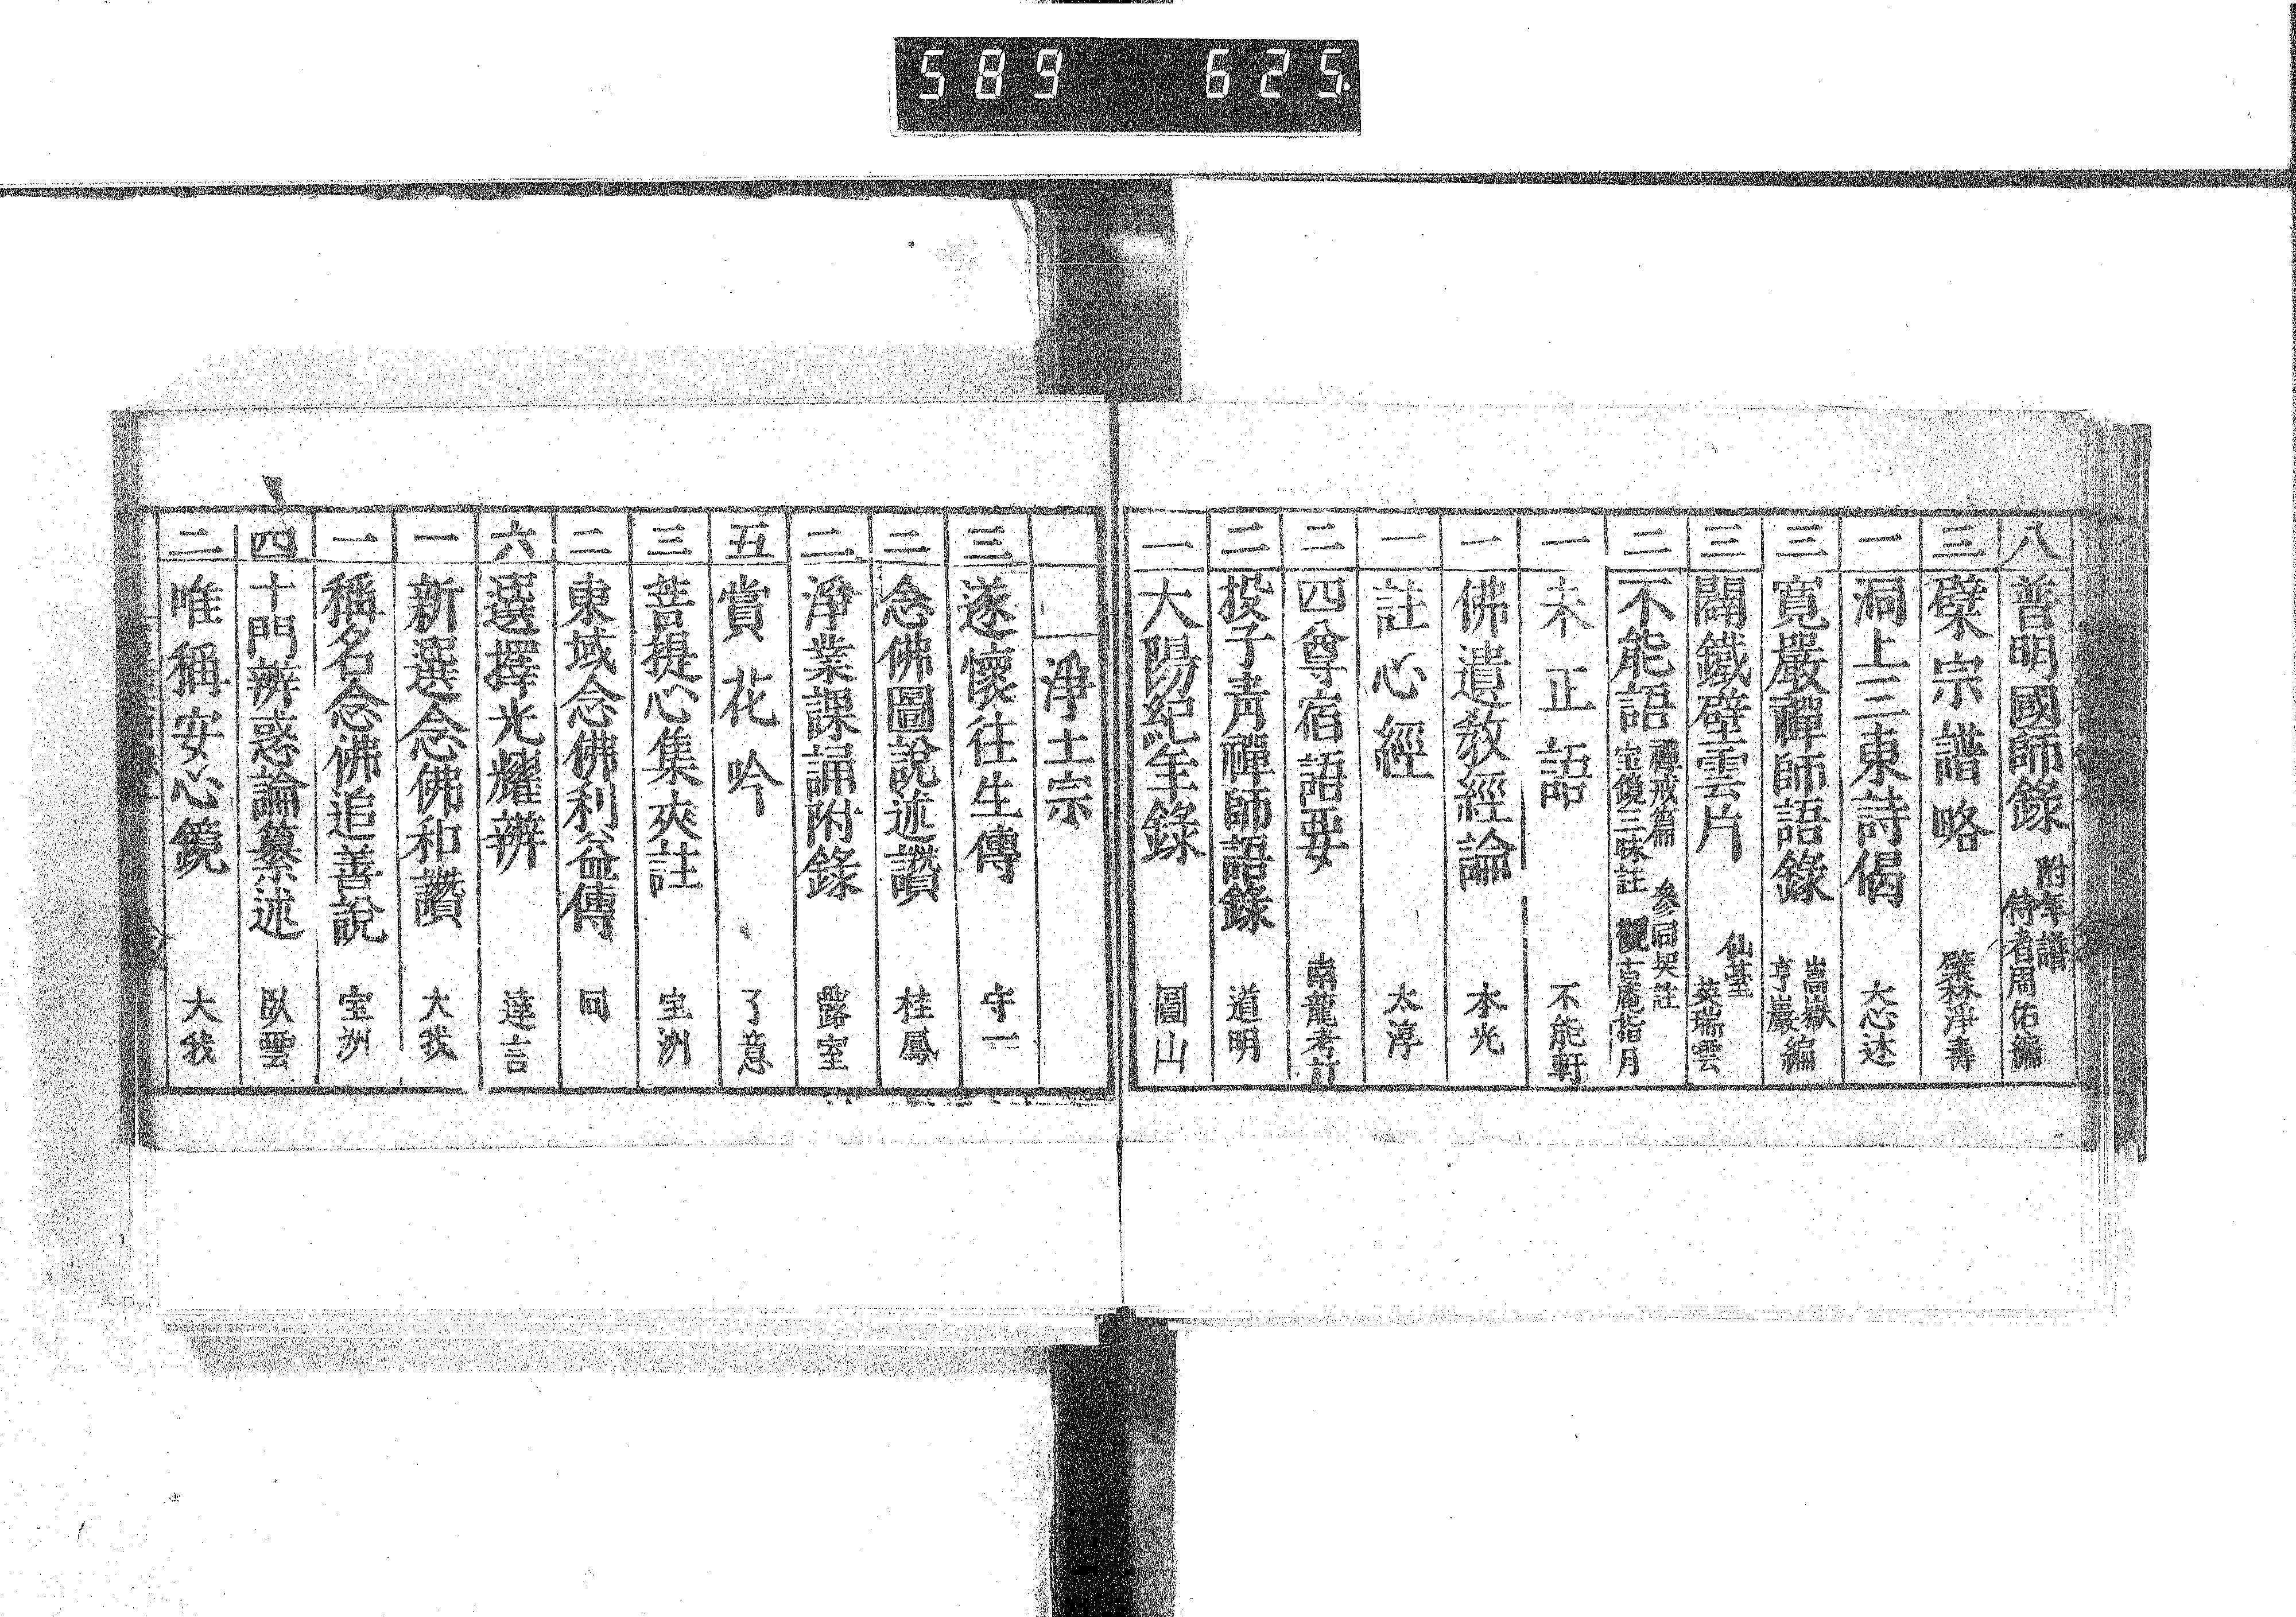 589 625
八 普明國師錄 附年譜 侍者周佑編
三 檗宗譜略 檗林淨壽
一 洞上三東詩偈 大心述
三 寬嚴禪師語錄 嵩嶽亨巖編
三 關鐵壁雲片 仙臺英瑞雲
二 不能語 禪戒篇 參同契註 宝鏡三昧註 櫬古菴指月
一 未正語 不能軒
一 佛遺教經論 本光
一 註心經 太淳
二 四尊宿語要 南龍考訂
二 投子青禪師語錄 道明
一 大陽紀年錄 圓山
淨土宗
三 遂懷往生傳 守一
二 念佛圖說述讚 桂鳳
二 淨業課誦附錄 露室
五 賞花吟 了意
三 菩提心集夾註 宝洲
二 東域念佛利益傳 同
六 選擇光耀辨 達言
一 新選念佛和讚 大我
一 稱名念佛追善說 宝洲
四 十門辨惑論纂述 臥雲
二 唯稱安心鏡 大我